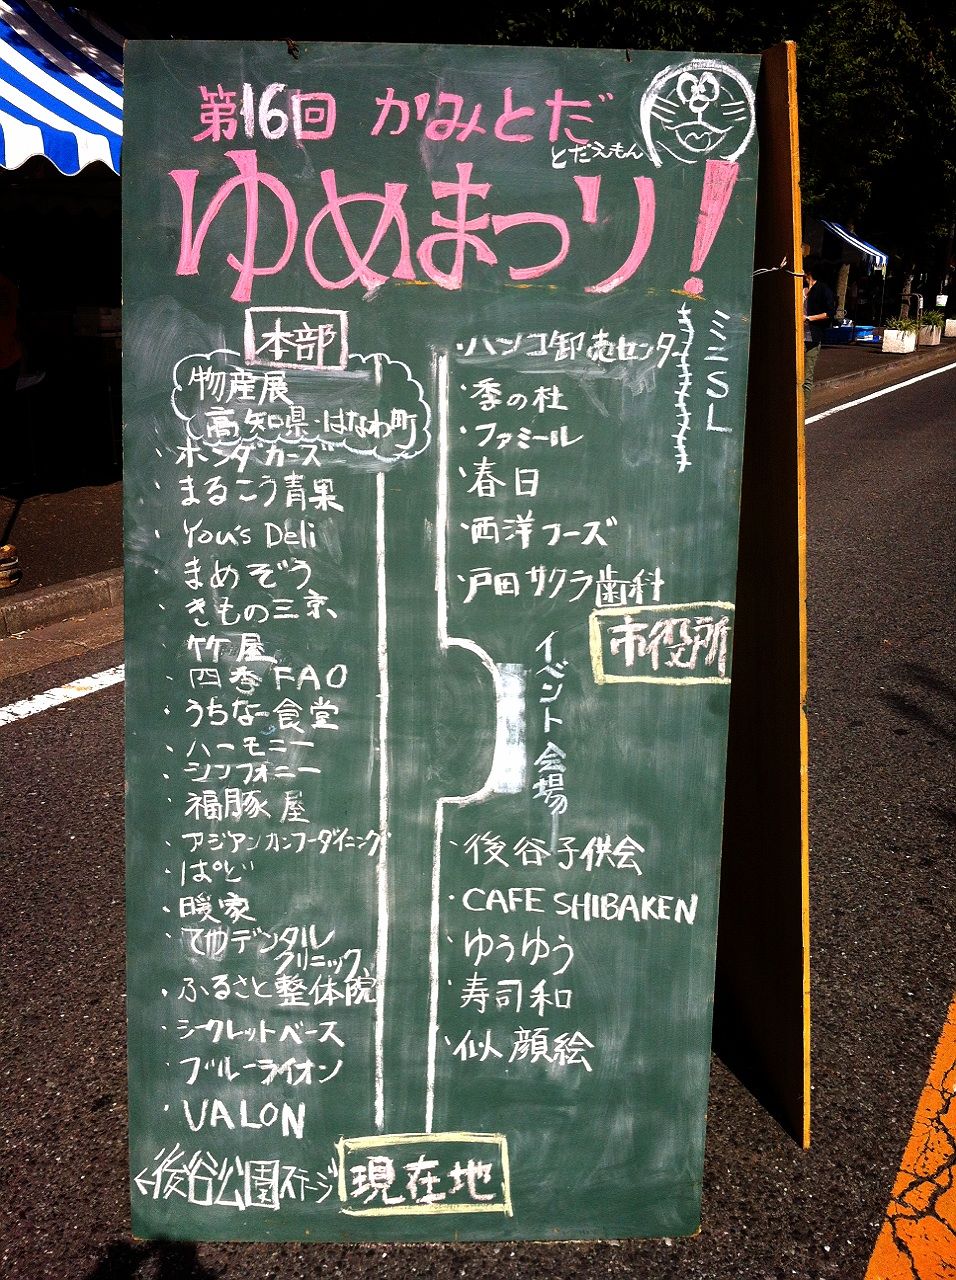 第16回 かみとだ
とだえもん
ゆめまつり!
本部
物産展
高知県・はなわ町
・ホンダカーズ
・まるこう青果
・You's Deli
・まめぞう
・きもの三京
・竹屋
・四季FAO
・うちなー食堂
・ハーモニー
・シンフォニー
・福豚屋
・アジアンカンフーダイニング
・ぱど
・暖家
・てやデンタル
クリニック
・ふるさと整体院
・シークレットベース
・ブルーライオン
・VALON
←後谷公園ステージ
現在地
・ハンコ卸売センター
・季の杜
・ファミール
・春日
・西洋フーズ
・戸田サクラ歯科
ミニSL
市役所
イベント会場
・後谷子供会
・CAFE SHIBAKEN
・ゆうゆう
・寿司和
・似顔絵